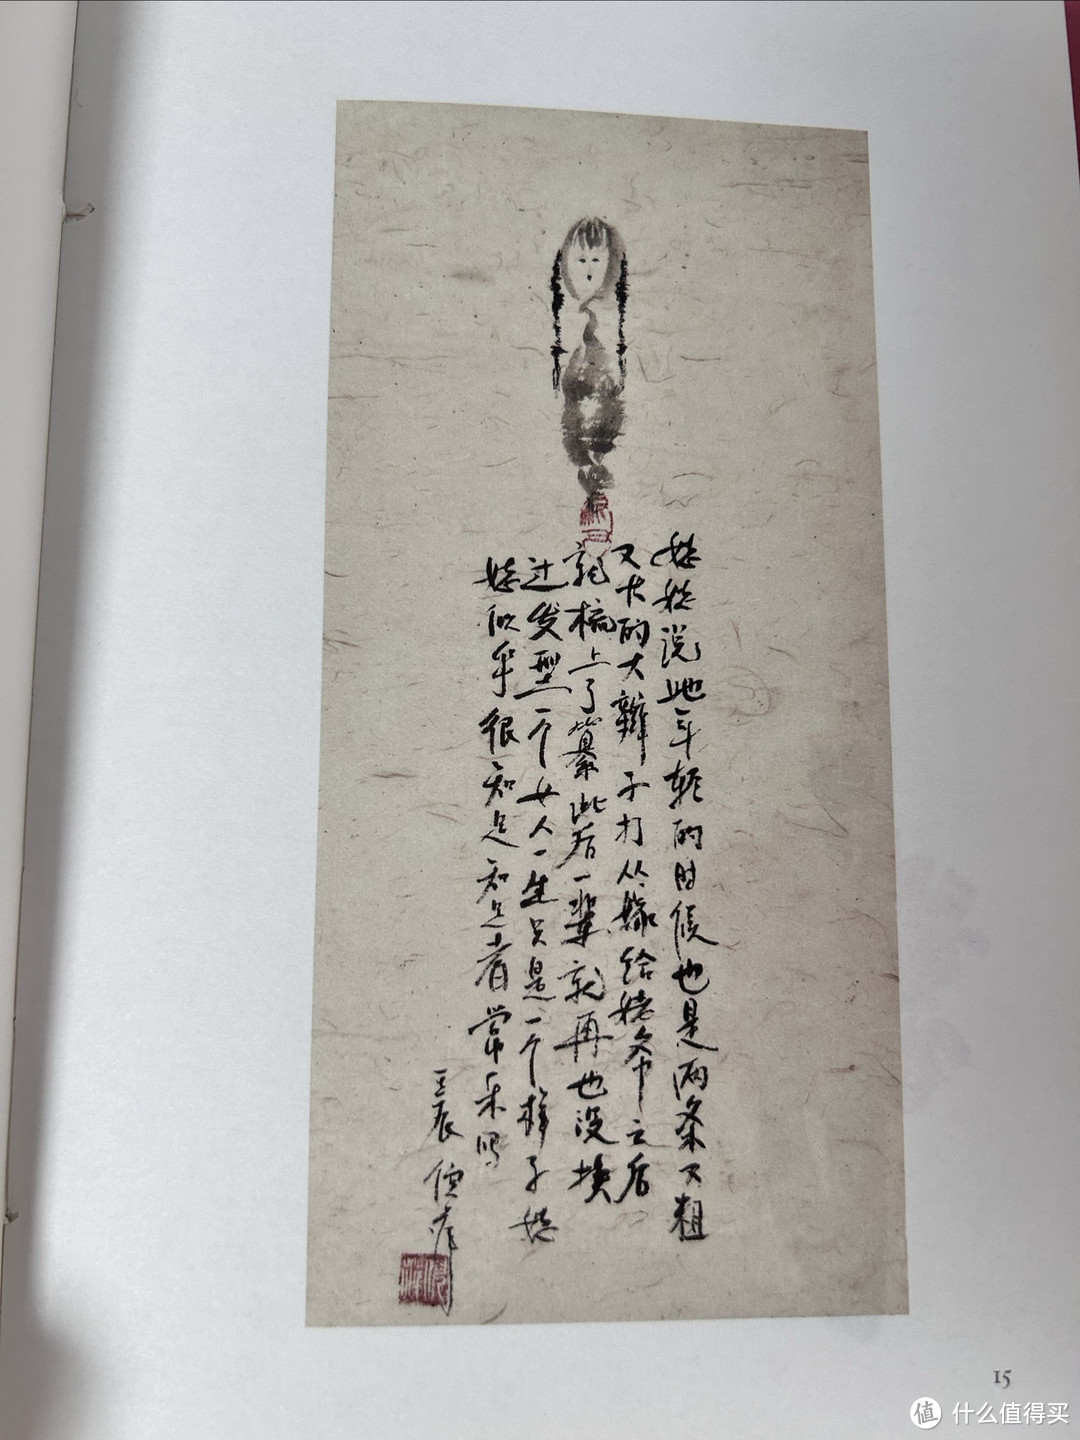 姥姥说她年轻的时候也是两条又粗
又大的大辫子打从嫁给姥爷之后
就梳上了纂此后一辈就再也没换
过发型一个女人一生只是一个样子姥
姥似乎很知足知足者常乐
壬辰
15
值 什么值得买